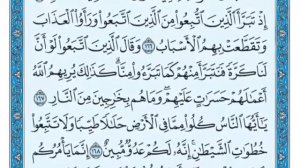 إِذْ تَبَرَّأَ ٱلَّذِينَ ٱتُّبِعُوا۟ مِنَ ٱلَّذِينَ ٱتَّبَعُوا۟ وَرَأَوُا۟ ٱلْعَذَابَ
وَتَقَطَّعَتْ بِهِمُ ٱلْأَسْبَابُ ١٦٦ وَقَالَ ٱلَّذِينَ ٱتَّبَعُوا۟ لَوْ أَنَّ
لَنَا كَرَّةً فَنَتَبَرَّأَ مِنْهُمْ كَمَا تَبَرَّءُوا۟ مِنَّا كَذَٰلِكَ يُرِيهِمُ ٱللَّهُ
أَعْمَٰلَهُمْ حَسَرَٰتٍ عَلَيْهِمْ وَمَا هُم بِخَٰرِجِينَ مِنَ ٱلنَّارِ ١٦٧
يَٰٓأَيُّهَا ٱلنَّاسُ كُلُوا۟ مِمَّا فِى ٱلْأَرْضِ حَلَٰلًا طَيِّبًا وَلَا تَتَّبِعُوا۟
خُطُوَٰتِ ٱلشَّيْطَٰنِ إِنَّهُۥ لَكُمْ عَدُوٌّ مُّبِينٌ ١٦٨ إِنَّمَا يَأْمُرُكُم